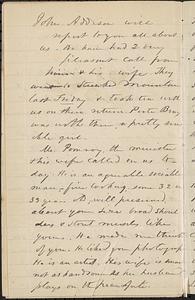 John Addison will
report to you all about
us. We have had 2 very
pleasant call from
& his wife. They
went to Mountain
last Friday & took tea with
us on their return. Pete Bray
was with them a pretty sen-
sible girl.
Mr. Pomroy, the minister
& his wife called on us to
day. He is an agreeable sociable
man, fine looking, some 32 or
33 years old, well preserved,
about your size broad should-
ers & stout muscles like
yours. He made me think
of you. He liked you photograph
He is an artist. His wife is
not as handsome as her husband
plays on the pianoforte.